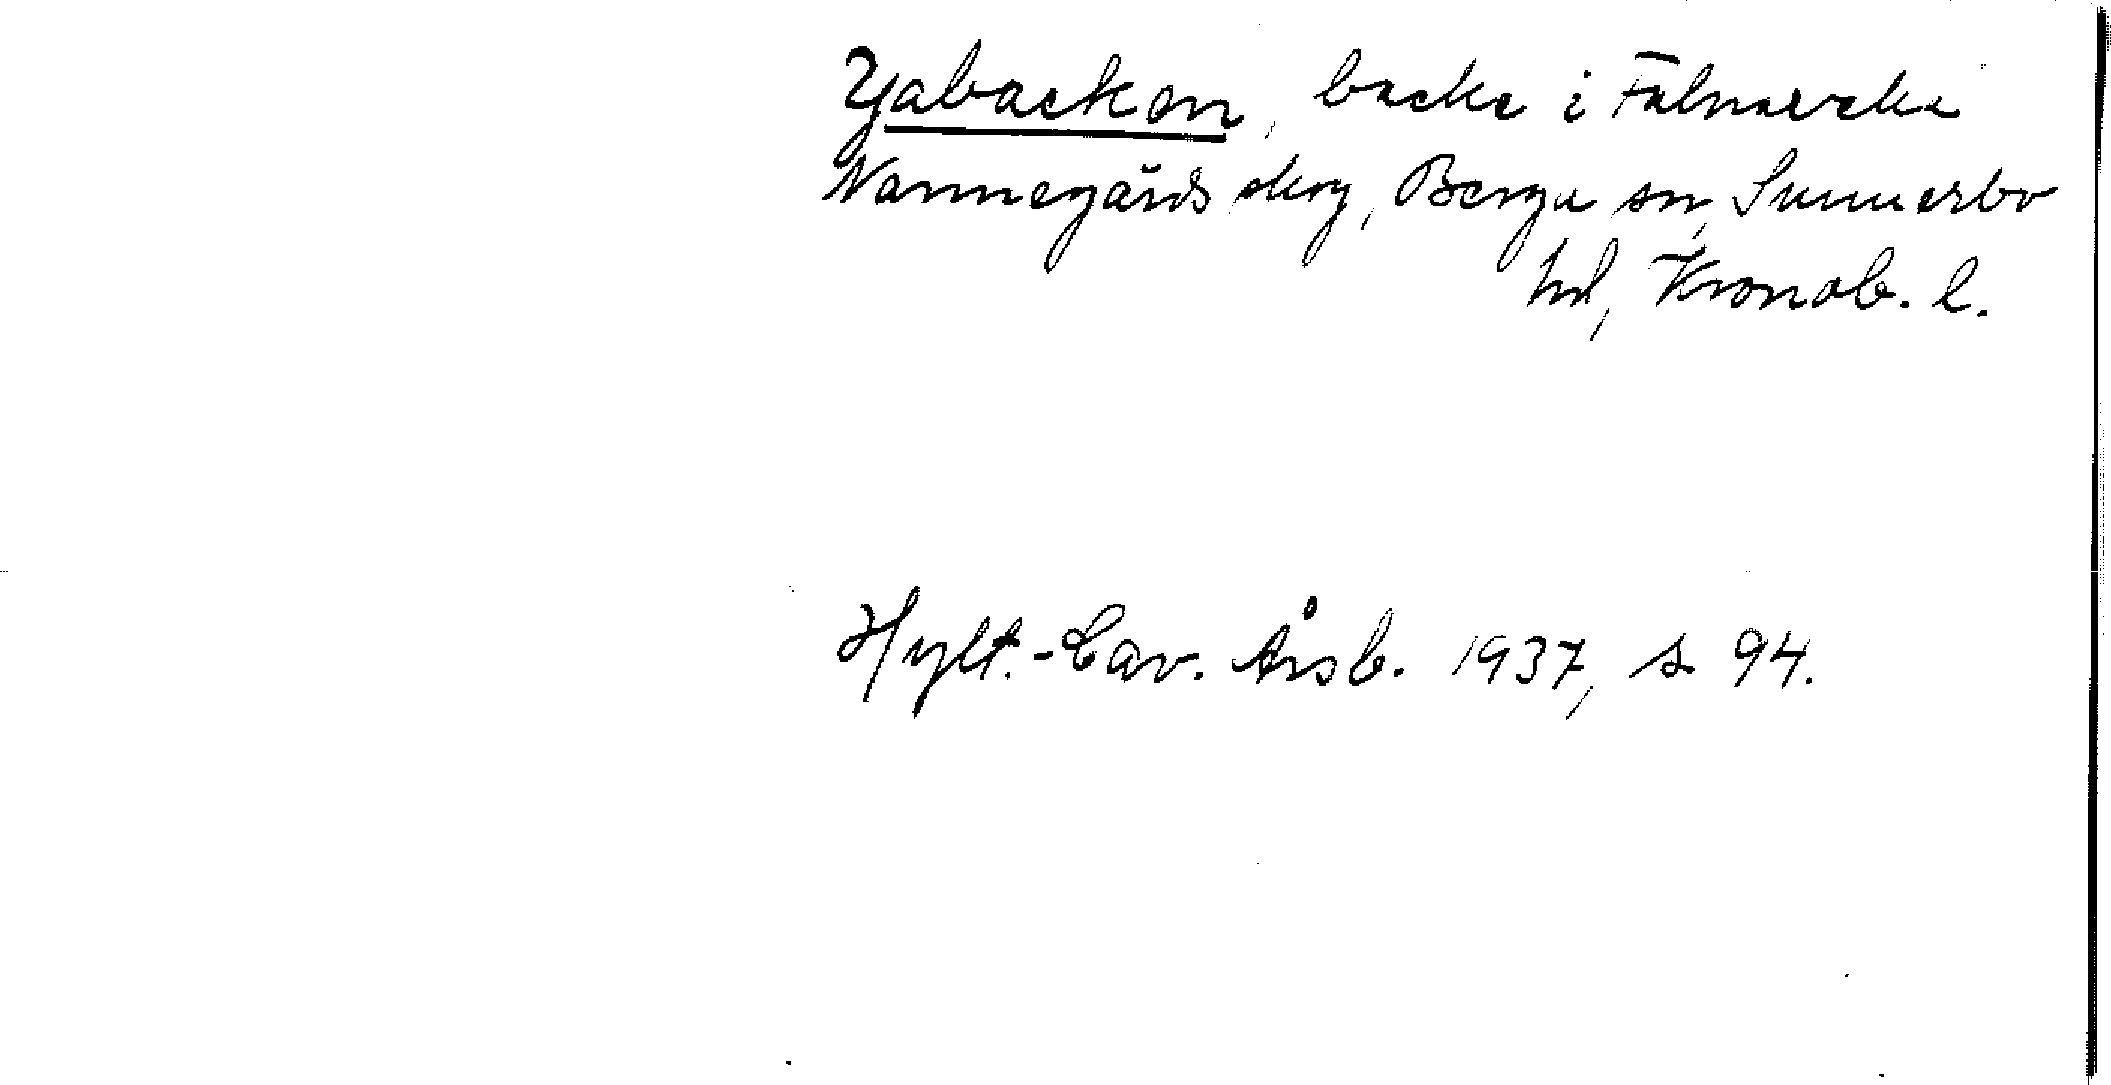 Yabacken, backe i Fålnaveka
Nannegårds skog, Berga sn, Sunnerbo
hd, Kronob. l.
Hylt.-Cav. Årsb. 1937, s. 94.